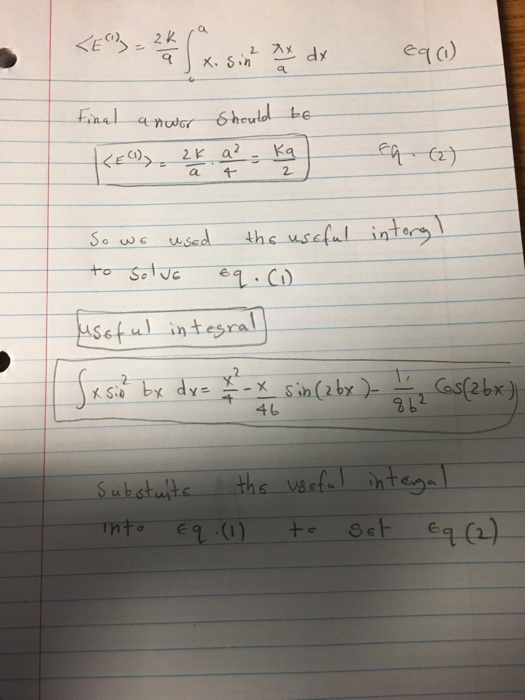 <E⁽¹⁾> = 2K/a ∫₀ᵃ x. sin² πx/a dx eq(1)
Final anwor Should be
<E⁽¹⁾> = 2K/a . a²/4 = Ka/2 Eq. (2)
So we used the useful intergl
to Solve eq. (1)
useful integral
∫x sin² bx dx = x²/4 - x/4b Sin(2bx) - 1/8b² Cos(2bx)
Substuite the useful integal
into eq.(1) to get Eq (2)